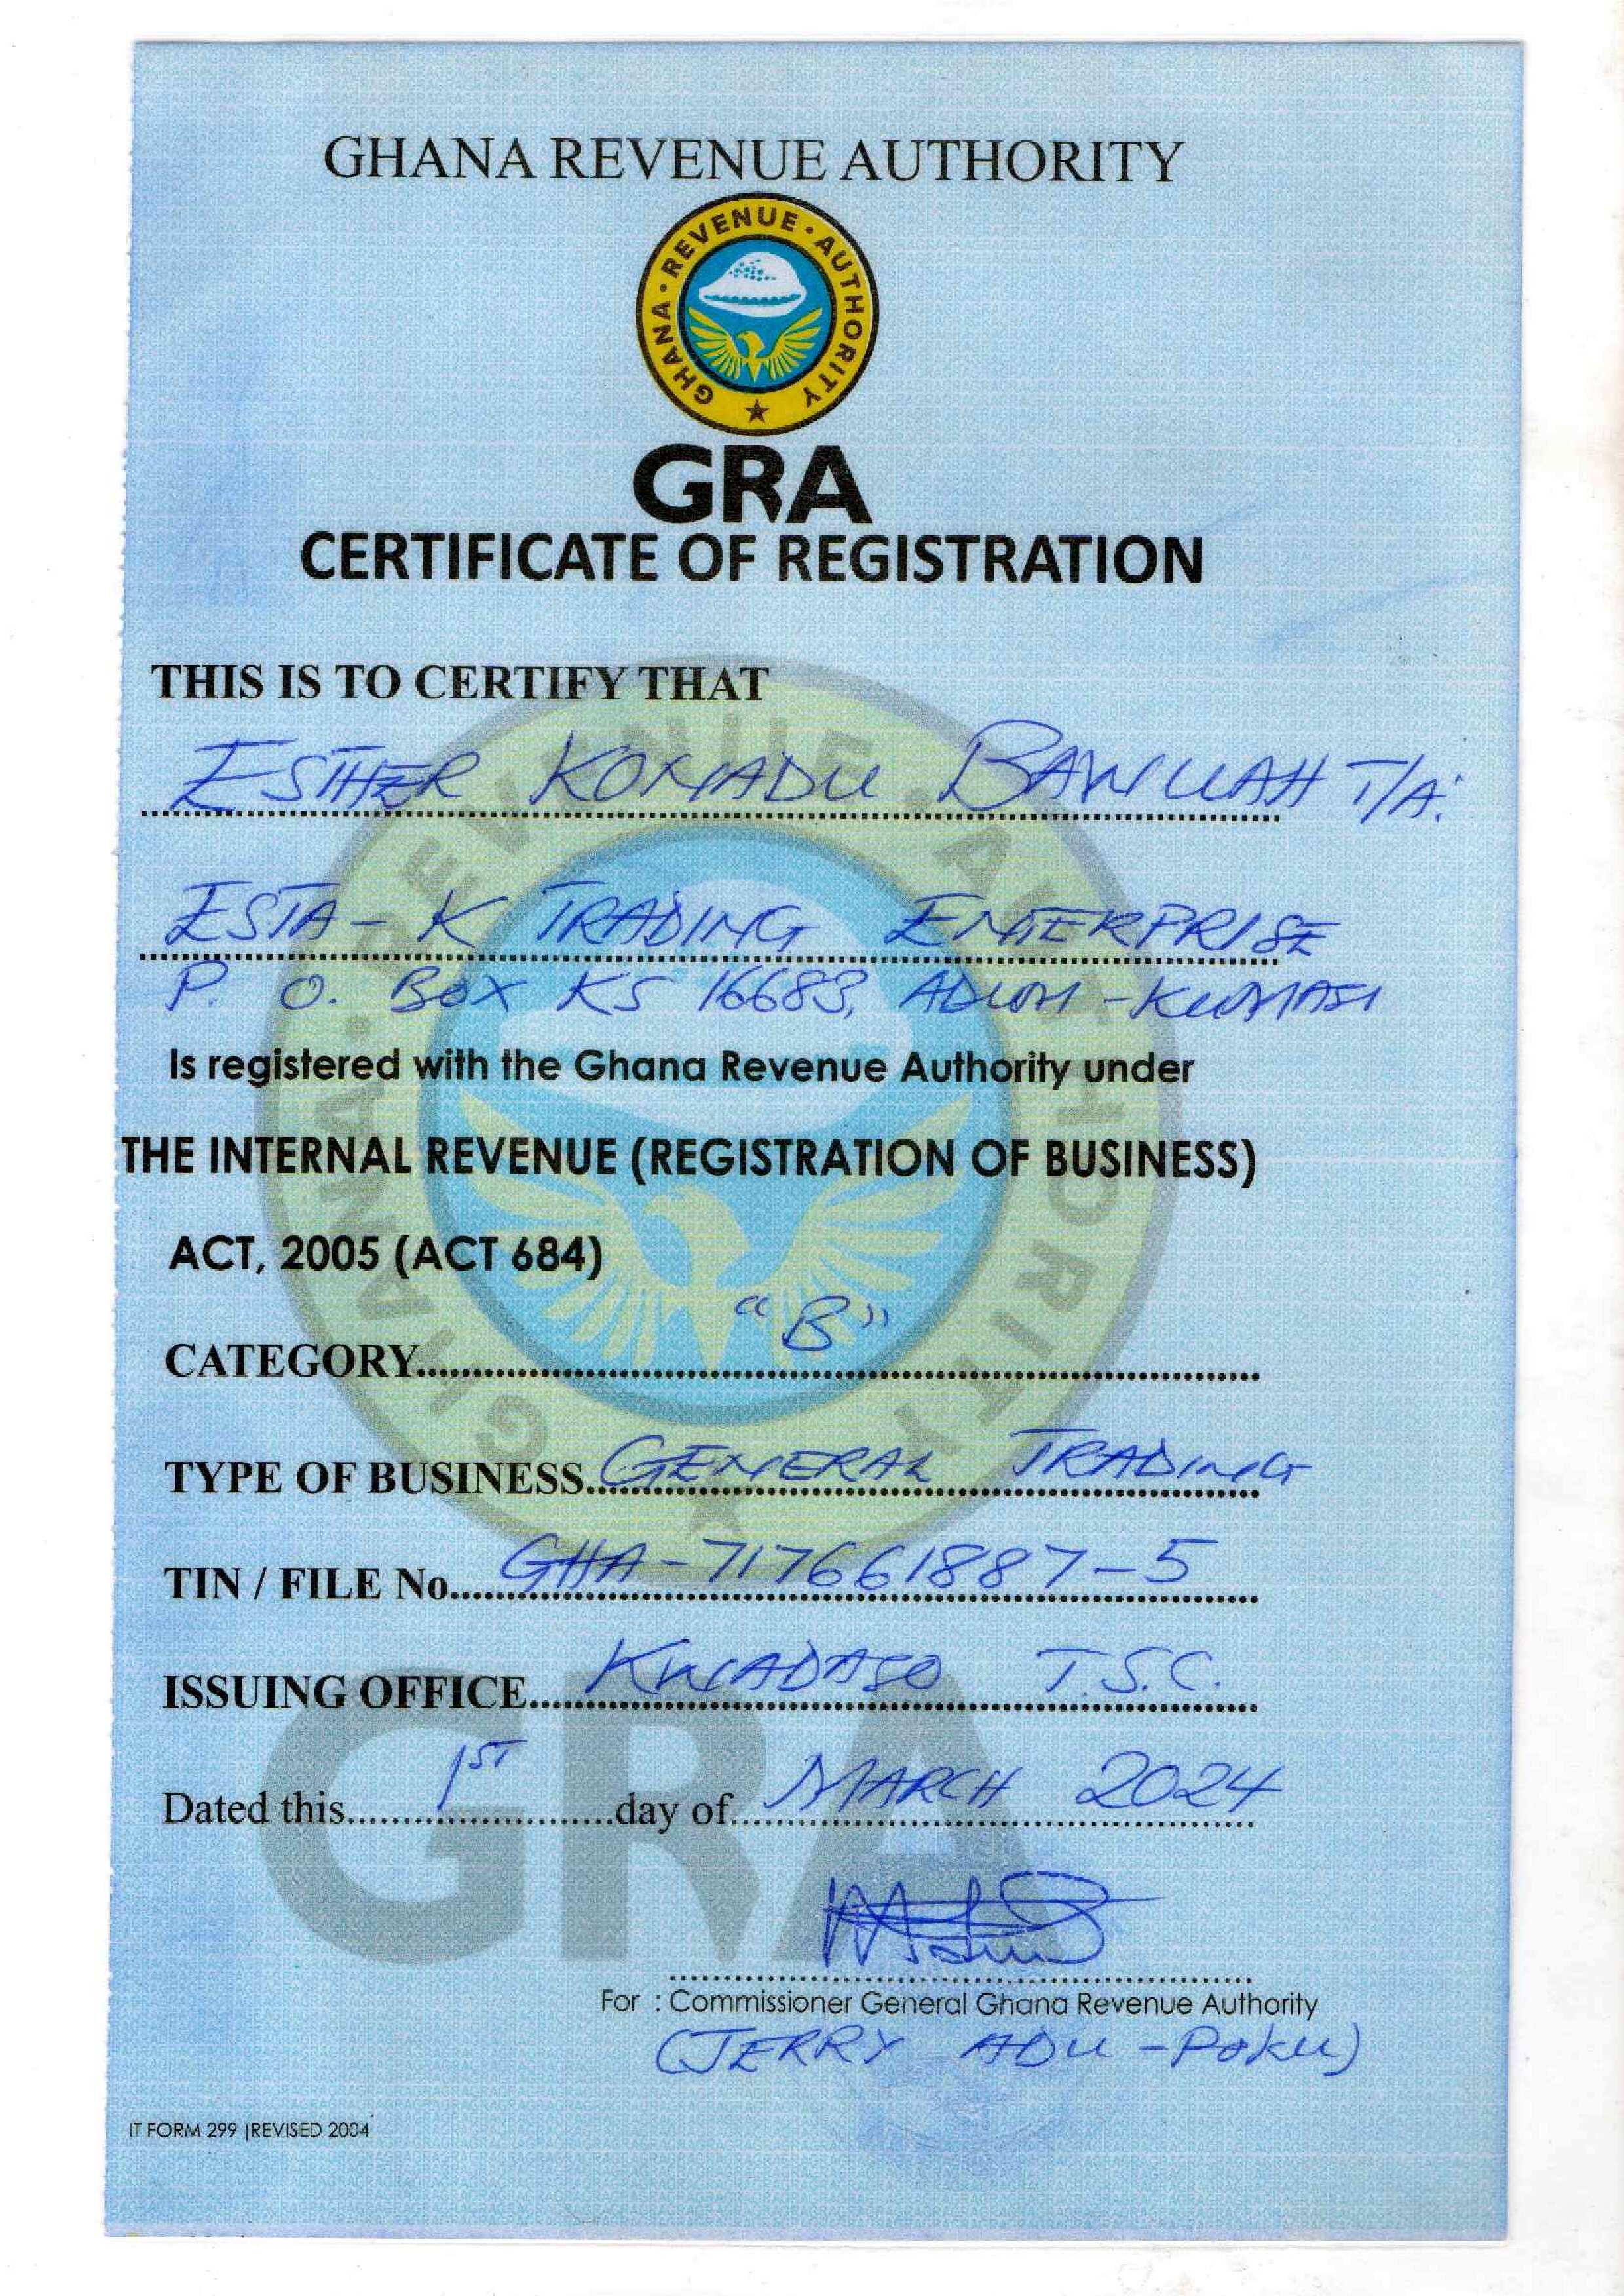 GHANA REVENUE AUTHORITY
GHANA · REVENUE · AUTHORITY
GRA
CERTIFICATE OF REGISTRATION
THIS IS TO CERTIFY THAT
ESTHER KONADU BAWUAH T/A:
ESTA-K TRADING ENTERPRISE
P. O. BOX KS 16683, ADUM-KUMASI
Is registered with the Ghana Revenue Authority under
THE INTERNAL REVENUE (REGISTRATION OF BUSINESS)
ACT, 2005 (ACT 684)
CATEGORY "B"
TYPE OF BUSINESS GENERAL TRADING
TIN / FILE No. GHA-717661887-5
ISSUING OFFICE KWADASO T.S.C.
Dated this 1ST day of MARCH 2024
For : Commissioner General Ghana Revenue Authority
(JERRY ADU-POKU)
IT FORM 299 (REVISED 2004